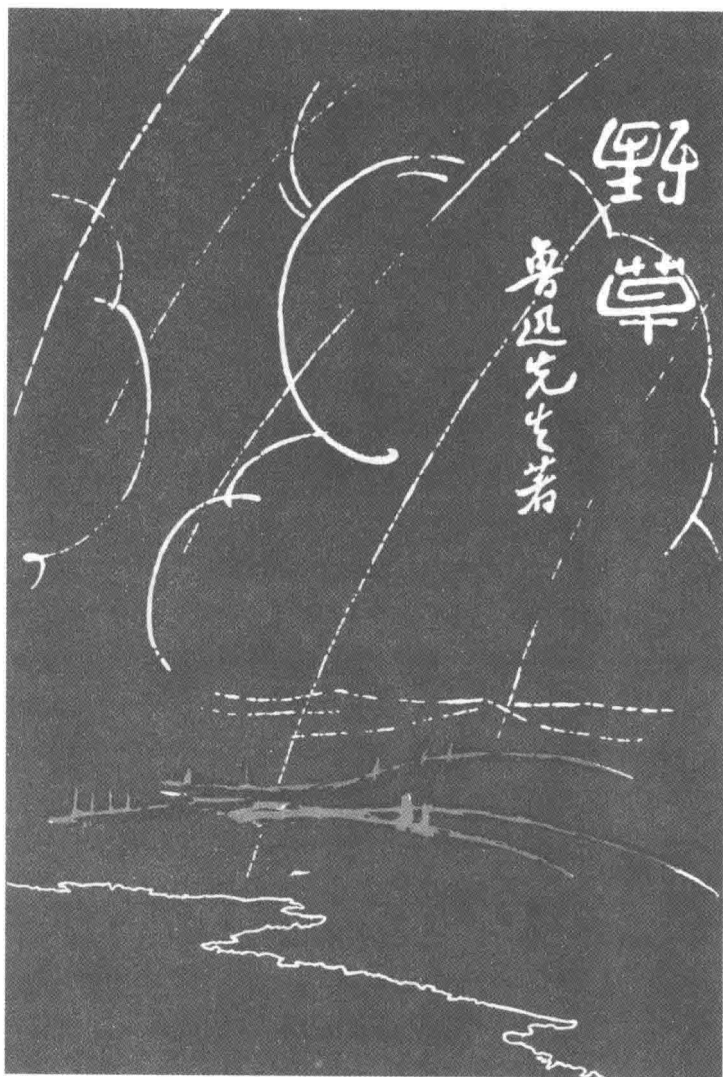 野草
魯迅先生著